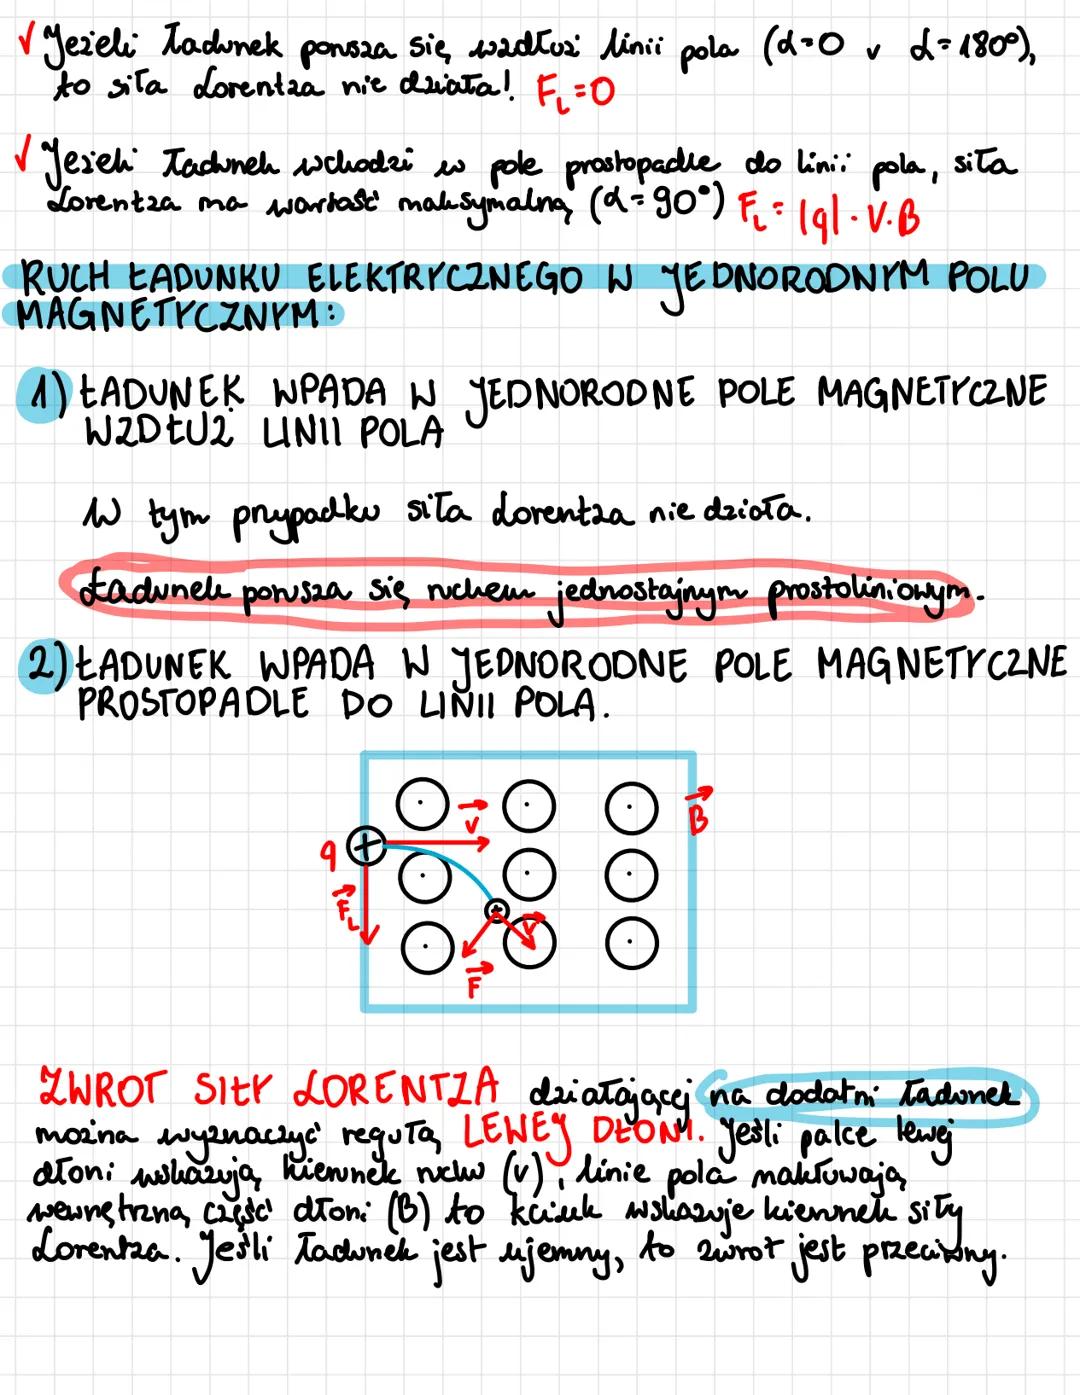 √ Jeżeli ładunek porusza się wzdłuż linii pola (α=0 v α=180°),
to siła Lorentza nie działa! F_L=0
√ Jeżeli ładunek wchodzi w pole prostopadle do linii pola, siła
Lorentza ma wartość maksymalną (α=90°) F_L=|q|·V·B
RUCH ŁADUNKU ELEKTRYCZNEGO W JEDNORODNYM POLU
MAGNETYCZNYM:
1) ŁADUNEK WPADA W JEDNORODNE POLE MAGNETYCZNE
WZDŁUŻ LINII POLA
W tym przypadku siła Lorentza nie działa.
Ładunek porusza się ruchem jednostajnym prostoliniowym.
2) ŁADUNEK WPADA W JEDNORODNE POLE MAGNETYCZNE
PROSTOPADLE DO LINII POLA.
V
B
q +
F_L
+
V
F
ZWROT SIŁY LORENTZA działającej na dodatni ładunek
można wyznaczyć regułą LEWEJ DŁONI. Jeśli palce lewej
dłoni wskazują kierunek ruchu (v), linie pola nakłuwają
wewnętrzną część dłoni (B) to kciuk wskazuje kierunek siły
Lorentza. Jeśli ładunek jest ujemny, to zwrot jest przeciwny.